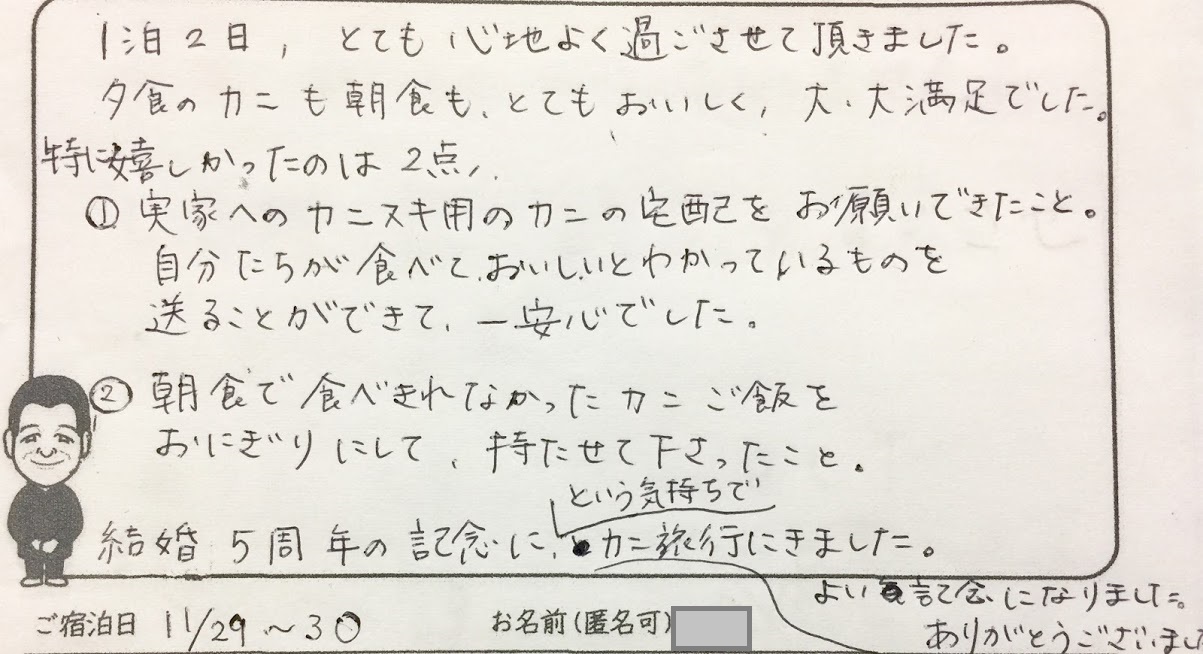 1泊2日,とても心地よく過ごさせて頂きました。
夕食のカニも朝食も、とてもおいしく,大・大満足でした。
特に嬉しかったのは2点、
① 実家へのカニスキ用のカニの宅配をお願いできたこと。
自分たちが食べて、おいしいとわかっているものを
送ることができて、一安心でした。
② 朝食で食べきれなかったカニご飯を
おにぎりにして、持たせて下さったこと。
という気持ちで
結婚5周年の記念に、カニ旅行にきました。
よい記念になりました。
ありがとうございまし
ご宿泊日 11/29~30 お名前(匿名可)